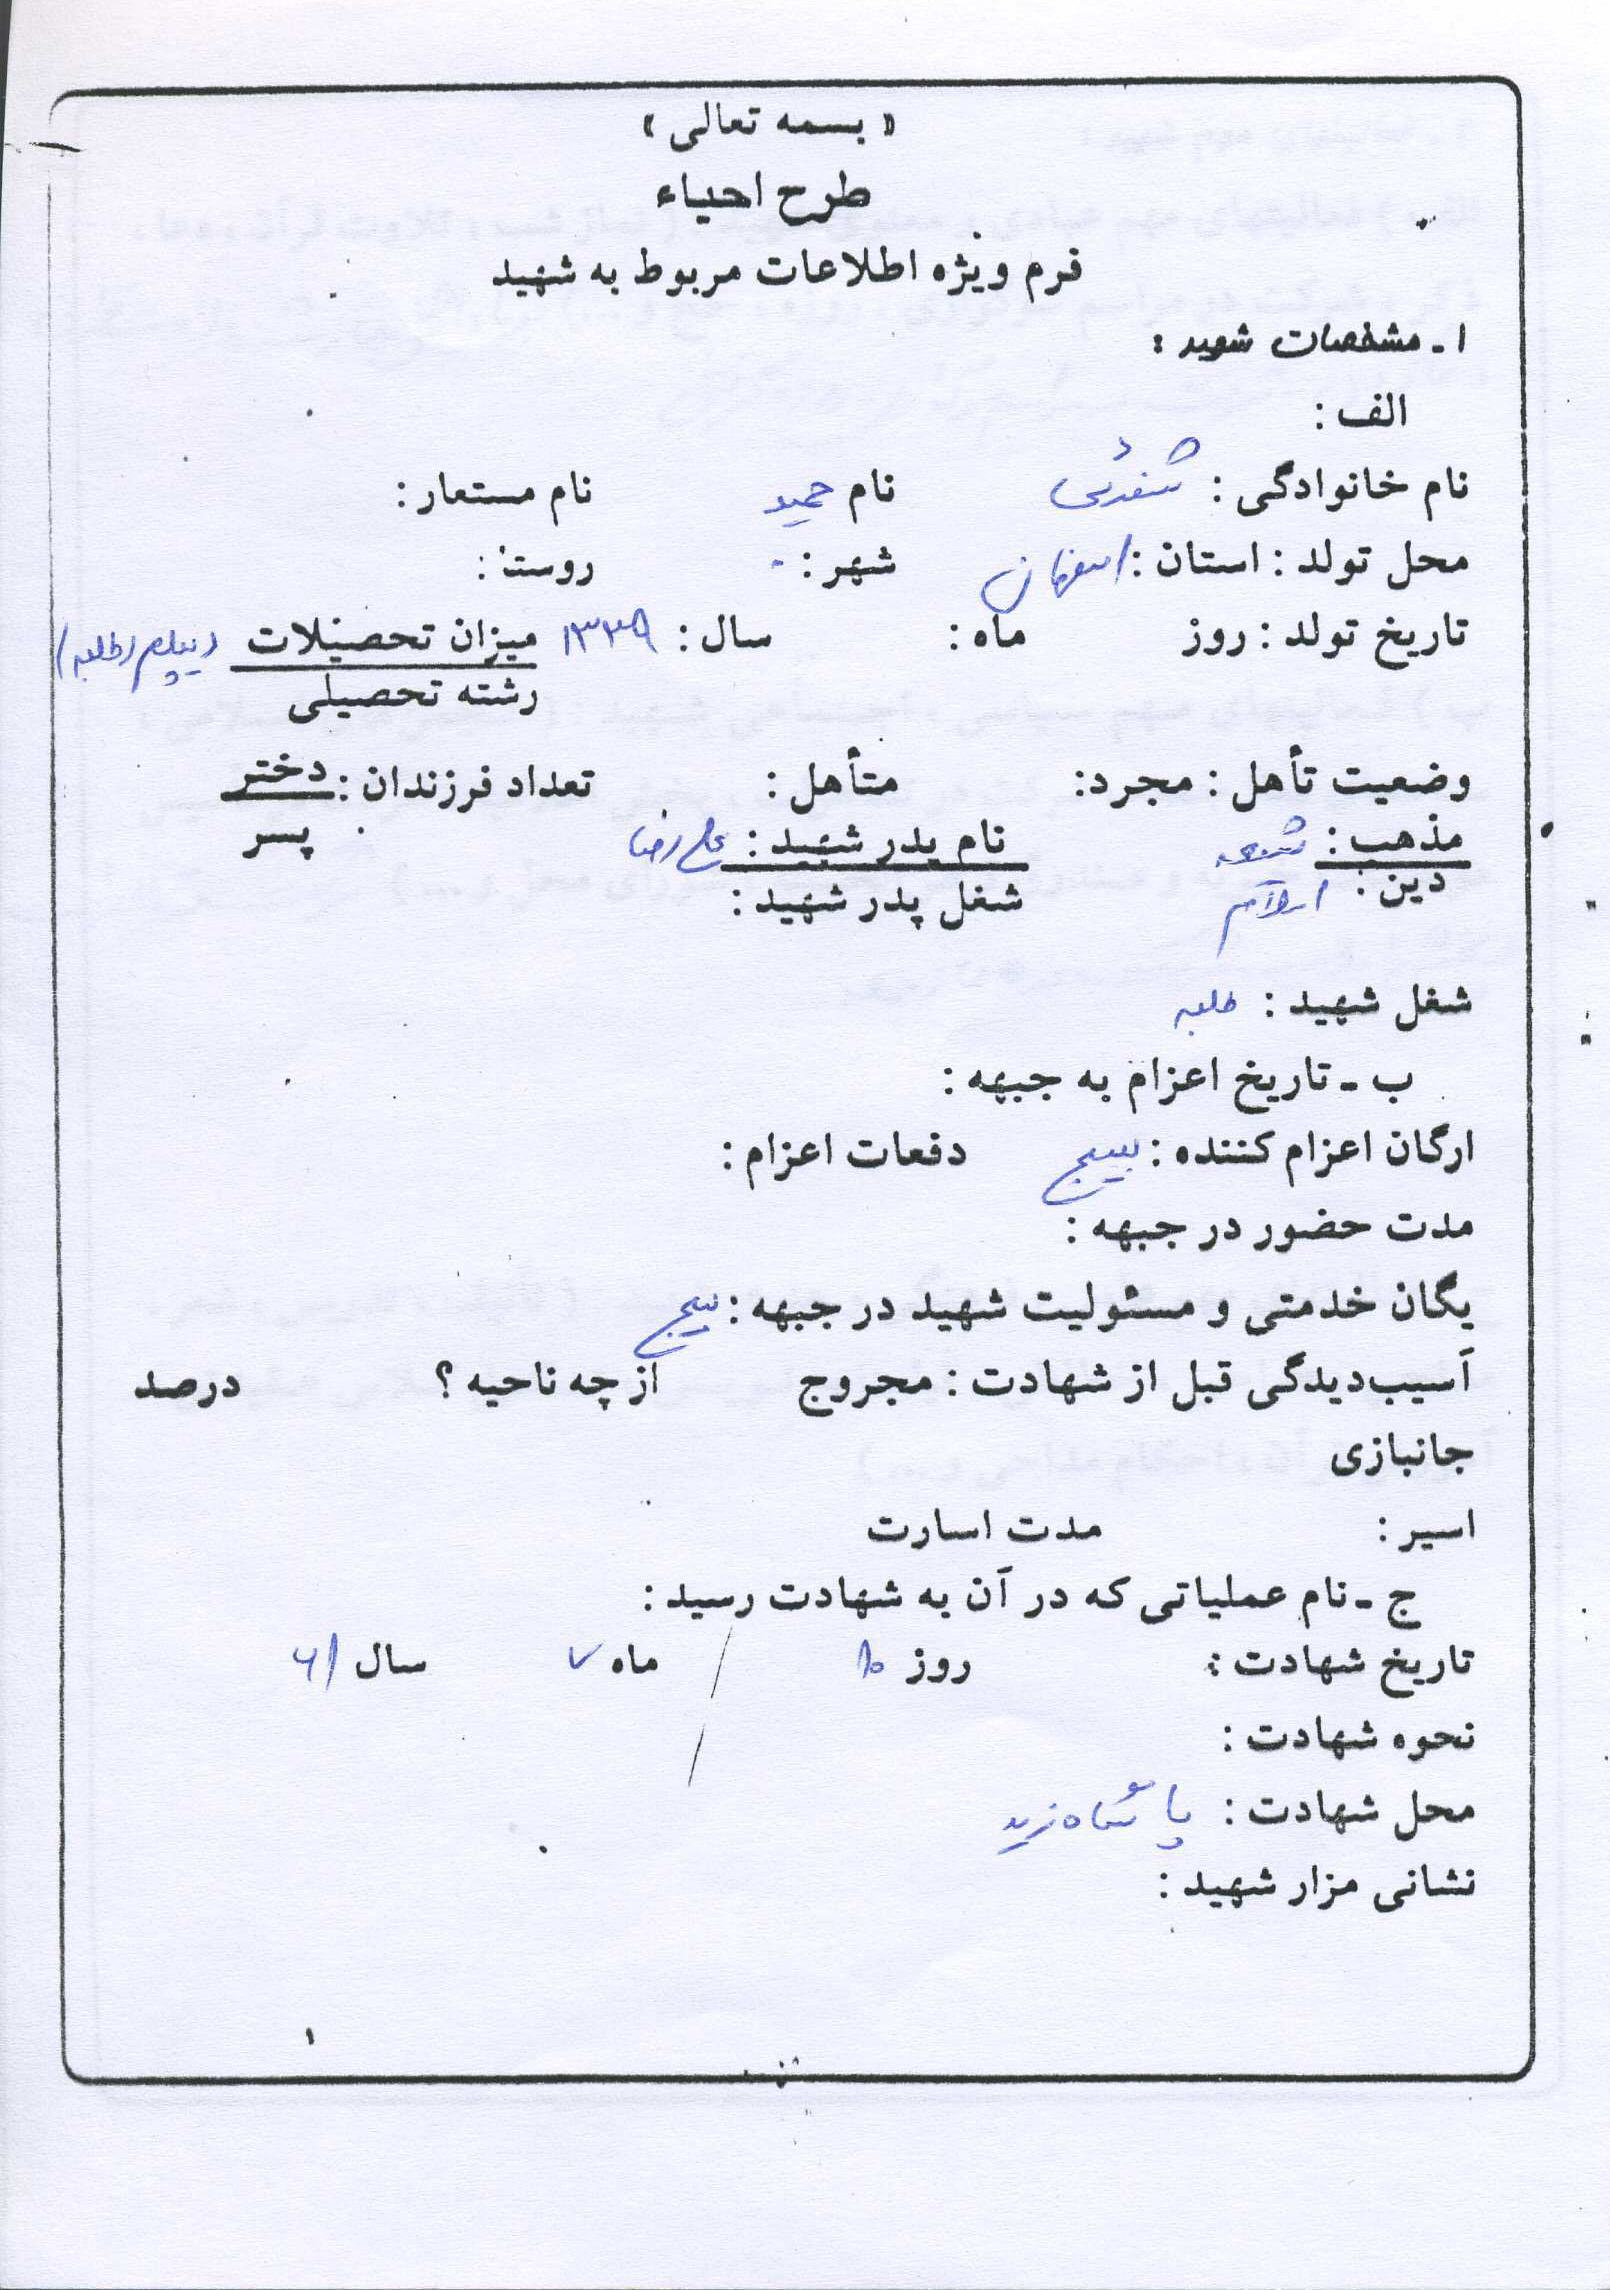 « بسمه تعالی »
طرح احیاء
فرم ویژه اطلاعات مربوط به شهید
۱ـ مشخصات شهید :
الف :
نام خانوادگی : نام حمید نام مستعار :
محل تولد : استان : اصفهان شهر : روستا :
تاریخ تولد : روز ماه : سال : ۱۳۳۹ میزان تحصیلات دیپلم (طلبه)
رشته تحصیلی
وضعیت تأهل : مجرد: متأهل : تعداد فرزندان : دختر
پسر
مذهب : شیعه نام پدر شهید : علی رضا
دین : اسلام شغل پدر شهید :
شغل شهید : طلبه
ب ـ تاریخ اعزام به جبهه :
ارگان اعزام کننده : بسیج دفعات اعزام :
مدت حضور در جبهه :
یگان خدمتی و مسئولیت شهید در جبهه : بسیج
آسیب‌دیدگی قبل از شهادت : مجروح از چه ناحیه ؟ درصد
جانبازی
اسیر : مدت اسارت
ج ـ نام عملیاتی که در آن به شهادت رسید :
تاریخ شهادت : روز ماه ۷ سال ۶۱
نحوه شهادت :
محل شهادت : پاسگاه زید
نشانی مزار شهید :
۱